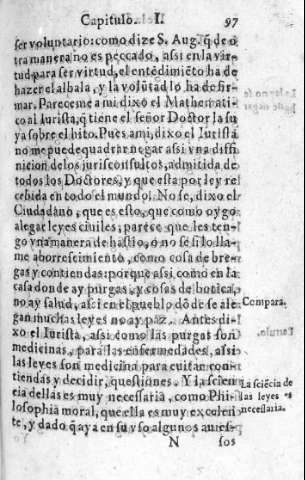 Capitulo. I. 97
ser voluntario: como dize S. Aug. q̃ de o
tra manera no es peccado, assi en la vir-
tud para ser virtud, el entẽdimiẽto ha de
hazer el albala, y la volũtad lo ha de fir-
mar. Pareceme a mi dixo el Mathemati-
co al Iurista, q̃ tiene el señor Doctor la su
ya sobre el hito. Pues a mi, dixo el Iurista
no me puede quadrar negar assi vna diffi-
nicion de los jurisconsultos, admitida de
todos los Doctores, y que esta por ley re
cebida en todo el mundo. No se, dixo el
Ciudadano, que es esto, que como oygo
alegar leyes ciuiles; parece que les ten-
go vna manera de hastio, ó no se si lo lla-
me aborrescimiento, como cosa de bre-
gas y contiendas: porque assi como en la
casa donde ay purgas, y cosas de botica,
no ay salud, assi en el pueblo dõde se ale
gan muchas leyes no ay paz. Antes di-
xo el Iurista, assi como las purgas son
medicinas, para las enfermedades, assi
las leyes son medicina para euitar con-
tiendas y decidir, questiones. Y la scien
cia dellas es muy necessaria, como Phi-
losophia moral, que ella es muy excelen
te, y dado q̃ aya en su vso algunos aues-
N sos
Compara.
La sciẽcia de
las leyes es
necessaria.